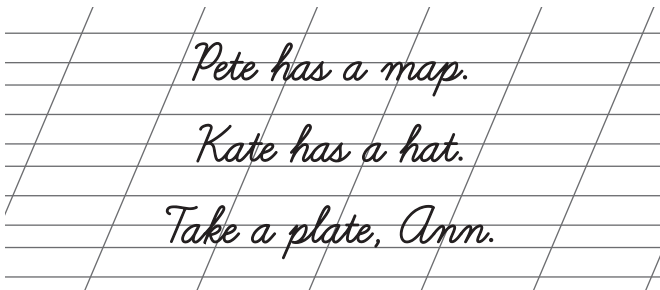 Pete has a map.
Kate has a hat.
Take a plate, Ann.